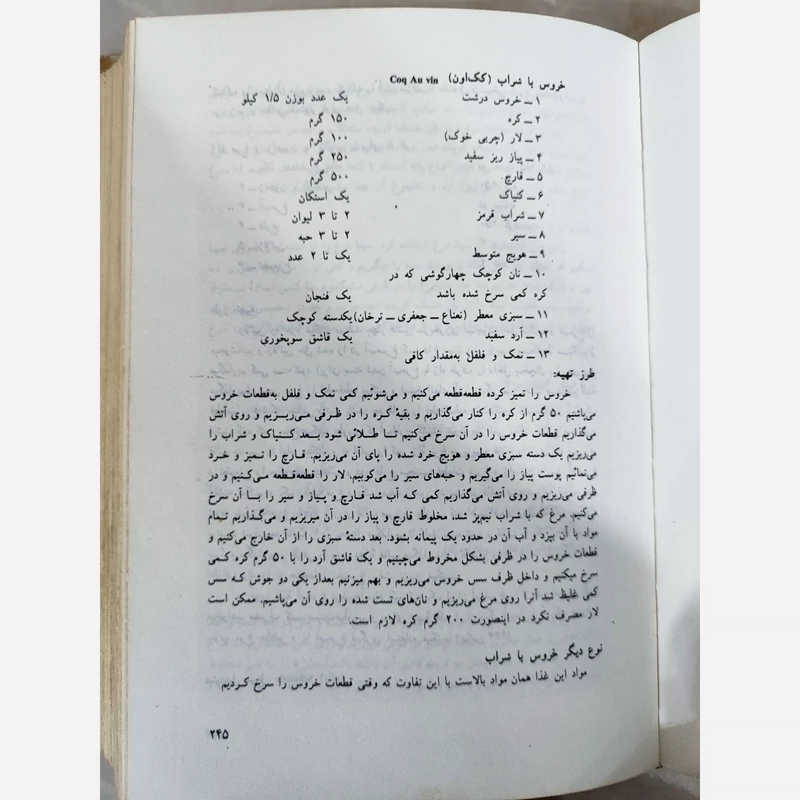 خروس با شراب (کک‌اون) Coq Au vin
۱ــ خروس درشت یک عدد بوزن ۱/۵ کیلو
۲ــ کره ۱۵۰ گرم
۳ــ لار (چربی خوک) ۱۰۰ گرم
۴ــ پیاز ریز سفید ۲۵۰ گرم
۵ــ قارچ ۵۰۰ گرم
۶ــ کنیاک یک استکان
۷ــ شراب قرمز ۲ تا ۳ لیوان
۸ــ سیر ۲ تا ۳ حبه
۹ــ هویج متوسط یک تا ۲ عدد
۱۰ــ نان کوچک چهارگوشی که در
کره کمی سرخ شده باشد یک فنجان
۱۱ــ سبزی معطر (نعناع ــ جعفری ــ ترخان) یکدسته کوچک
۱۲ــ آرد سفید یک قاشق سوپخوری
۱۳ــ نمک و فلفل به‌مقدار کافی
طرز تهیه:
خروس را تمیز کرده قطعه‌قطعه می‌کنیم و می‌شوئیم کمی نمک و فلفل به‌قطعات خروس
می‌پاشیم ۵۰ گرم از کره را کنار می‌گذاریم و بقیهٔ کره را در ظرفی می‌ریزیم و روی آتش
می‌گذاریم قطعات خروس را در آن سرخ می‌کنیم تا طلائی شود بعد کنیاک و شراب را
می‌ریزیم یک دسته سبزی معطر و هویج خرد شده را پای آن می‌ریزیم. قارچ را تمیز و خرد
می‌نمائیم پوست پیاز را می‌گیریم و حبه‌های سیر را می‌کوبیم. لار را قطعه‌قطعه می‌کنیم و در
ظرفی می‌ریزیم و روی آتش می‌گذاریم کمی که آب شد قارچ و پیاز و سیر را با آن سرخ
می‌کنیم. مرغ که با شراب نیم‌پز شد، مخلوط قارچ و پیاز را در آن میریزیم و می‌گذاریم تمام
مواد با آن بپزد و آب آن در حدود یک پیمانه بشود. بعد دستهٔ سبزی را از آن خارج می‌کنیم و
قطعات خروس را در ظرفی بشکل مخروط می‌چینیم و یک قاشق آرد را با ۵۰ گرم کره کمی
سرخ میکنیم و داخل ظرف سس خروس می‌ریزیم و بهم میزنیم بعداز یکی دو جوش که سس
کمی غلیظ شد آنرا روی مرغ می‌ریزیم و نان‌های تست شده را روی آن می‌پاشیم. ممکن است
لار مصرف نکرد در اینصورت ۲۰۰ گرم کره لازم است.
نوع دیگر خروس با شراب
مواد این غذا همان مواد بالاست با این تفاوت که وقتی قطعات خروس را سرخ کردیم
۲۴۵